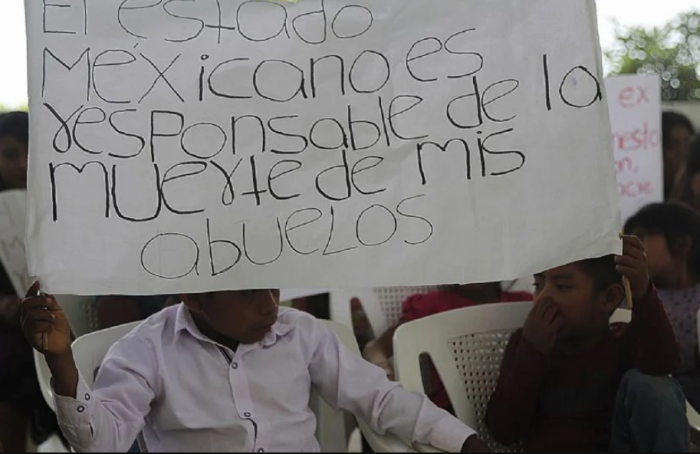 El estado
Mexicano es
responsable de la
muerte de mis
abuelos
ex